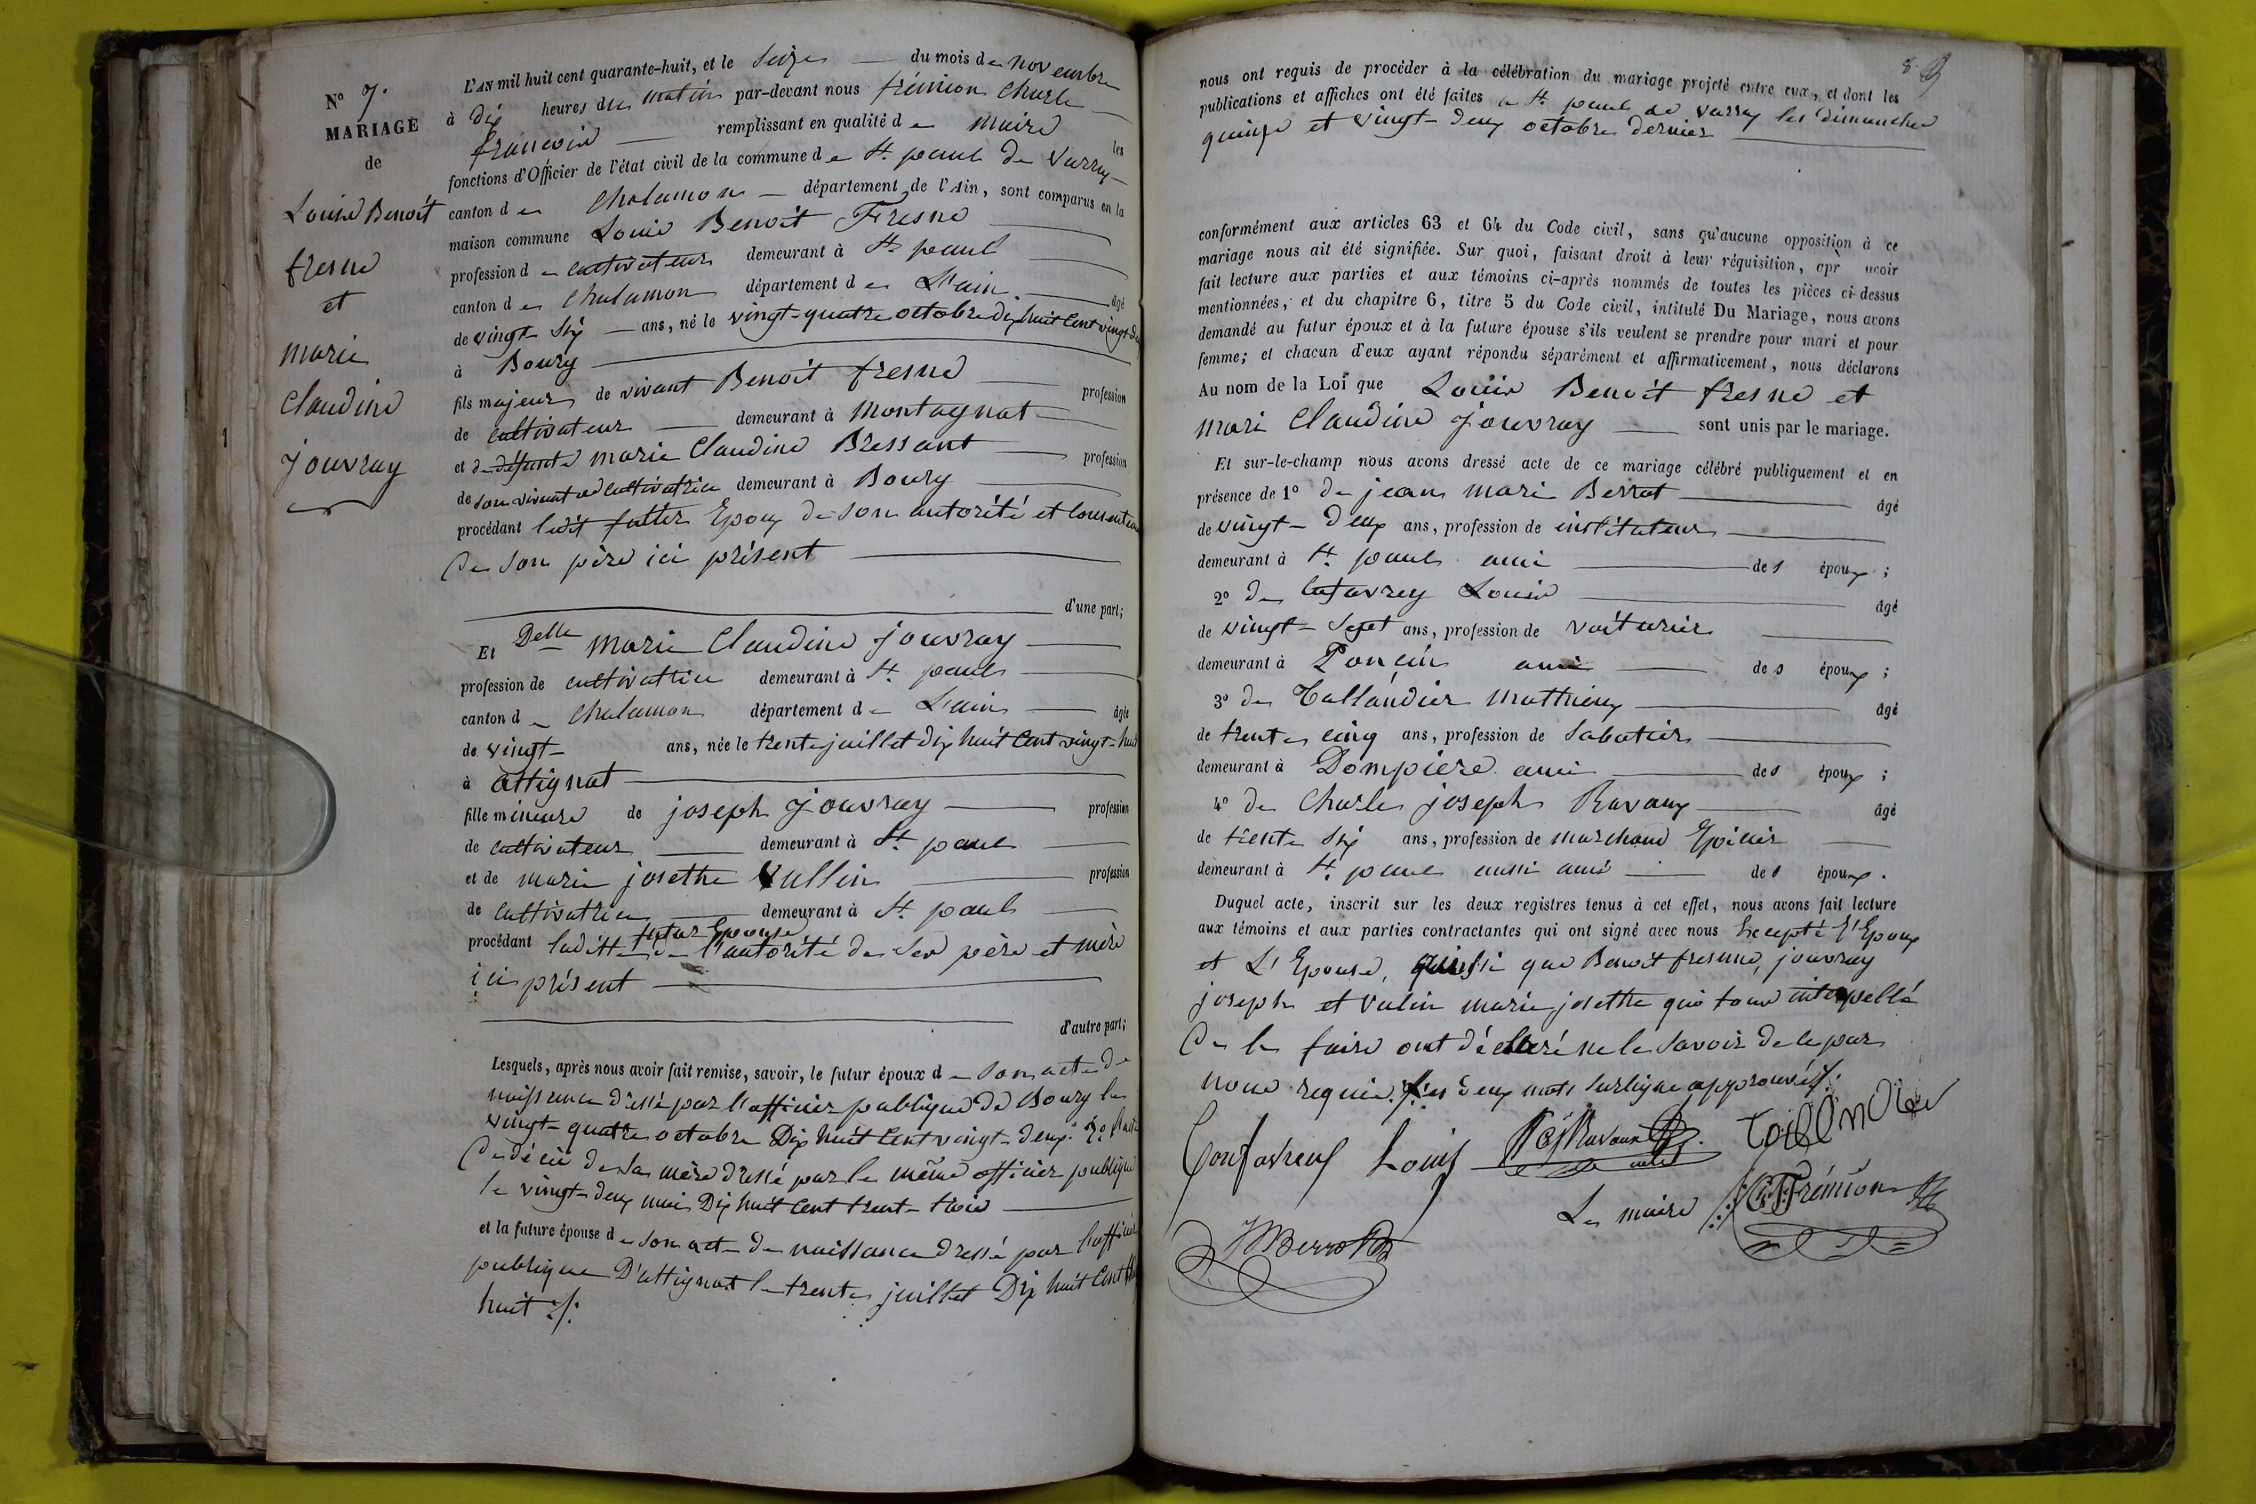 N° 7.
MARIAGE
de
Louis Benoit
fresne
et
marie
Claudine
Jouvray
L'AN mil huit cent quarante-huit, et le Seize du mois de novembre
à dix heures du matin par-devant nous frémion Charle
françois remplissant en qualité de maire les
fonctions d'Officier de l'état civil de la commune de St. paul de Varax
canton de Chalamon département de l'Ain, sont comparus en la
maison commune Louis Benoit Fresne
profession de cultivateur demeurant à St paul
canton de Chalamon département de L'ain. âgé
de vingt Six ans, né le vingt-quatre octobre dix huit Cent vingt-
à Bourg
fils majeur de vivant Benoit fresne profession
de cultivateur demeurant à Montagnat
et de défunte marie Claudine Bressant profession
de son vivant cultivatrice demeurant à Bourg
procédant ledit futur Epoux de son autorité et
De son père ici présent
d'une part;
Et Delle Marie Claudine Jouvray
profession de cultivatrice demeurant à St. paul
canton de Chalamon département de L'ain âgée
de vingt ans, née le trente juillet dix huit Cent vingt-huit
à attignat
fille mineure de joseph Jouvray profession
de cultivateur demeurant à St. paul
et de marie josethe Vullin profession
de cultivatrice demeurant à St. paul
futur Epouse
procédant laditte de l'autorité de Ses père et mère
ici présent
d'autre part;
Lesquels, après nous avoir fait remise, savoir, le futur époux de Son acte de
naissance dressé par l'officier publique de Bourg le
vingt-quatre octobre Dix huit Cent vingt-deux. 2°
De décès de Sa mère dressé par le même officier publique
le vingt-deux mai Dix huit Cent trente-trois
et la future épouse de Son acte de naissance dressé par l'officier
publique D'attignat le trente juillet Dix huit Cent
huit ./.
8.
nous ont requis de procéder à la célébration du mariage projeté entre eux, et dont les
publications et affiches ont été faites a St. paul de Varax les dimanches
quinze et vingt-deux octobre dernier
conformément aux articles 63 et 64 du Code civil, sans qu'aucune opposition à ce
mariage nous ait été signifiée. Sur quoi, faisant droit à leur réquisition, apr avoir
fait lecture aux parties et aux témoins ci-après nommés de toutes les pièces ci-dessus
mentionnées, et du chapitre 6, titre 5 du Code civil, intitulé Du Mariage, nous avons
demandé au futur époux et à la future épouse s'ils veulent se prendre pour mari et pour
femme; et chacun d'eux ayant répondu séparément et affirmativement, nous déclarons
Au nom de la Loi que Louis Benoit fresne et
Mari Claudine Jouvray sont unis par le mariage.
Et sur-le-champ nous avons dressé acte de ce mariage célébré publiquement et en
présence de 1° de jean Mari Berrot âgé
de vingt-deux ans, profession de instituteur
demeurant à St. paul ami des époux;
2° de Louis âgé
de vingt-Sept ans, profession de voiturier
demeurant à Poncin ami des époux;
3° de Tallandier Mathieu âgé
de trente cinq ans, profession de Sabotier
demeurant à Dompiere ami des époux;
4° de Charle joseph Ravaux âgé
de trente Six ans, profession de marchand Epicier
demeurant à St. paul aussi ami des époux.
Duquel acte, inscrit sur les deux registres tenus à cet effet, nous avons fait lecture
aux témoins et aux parties contractantes qui ont signé avec nous Excepté l'Epoux
et L'Epouse, que Benoit fresne, jouvray
joseph et Vulin marie josethe qui tous interpellé
De le faire ont déclaré ne le Savoir de ce par
nous requis. Les deux mots surligne approuvés./.
Confavreux Louis CJRavaux Taillandier
Le maire CFFrémion
JMBerrot